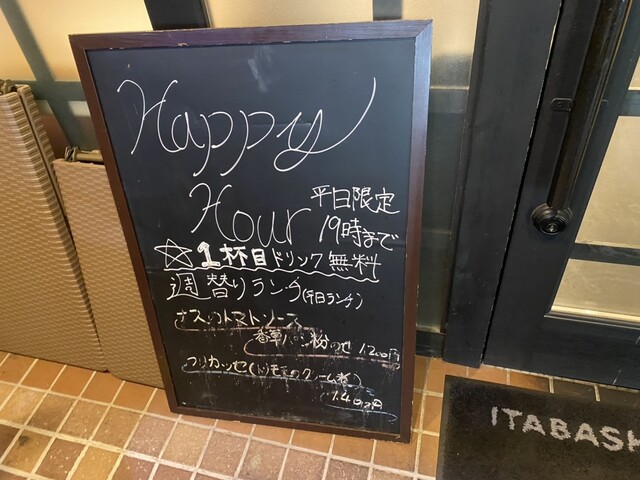 Happy
Hour 平日限定
19時まで
☆1杯目ドリンク無料
週替りランチ(平日ランチ)
ナスのトマトソース
香草パン粉のせ 1.200円
フリカッセ(トリモモのクリーム煮)
1.400円
ITABASH